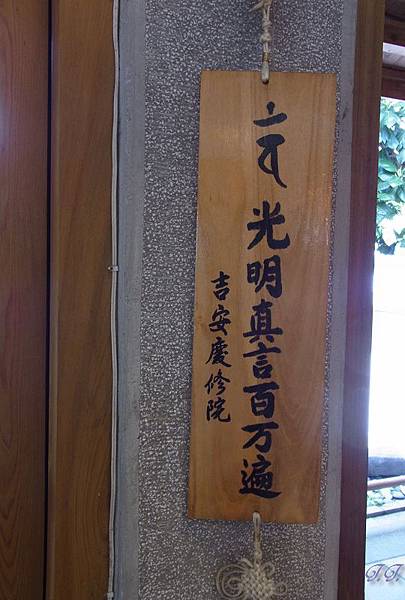 光明真言百万遍
吉安慶修院